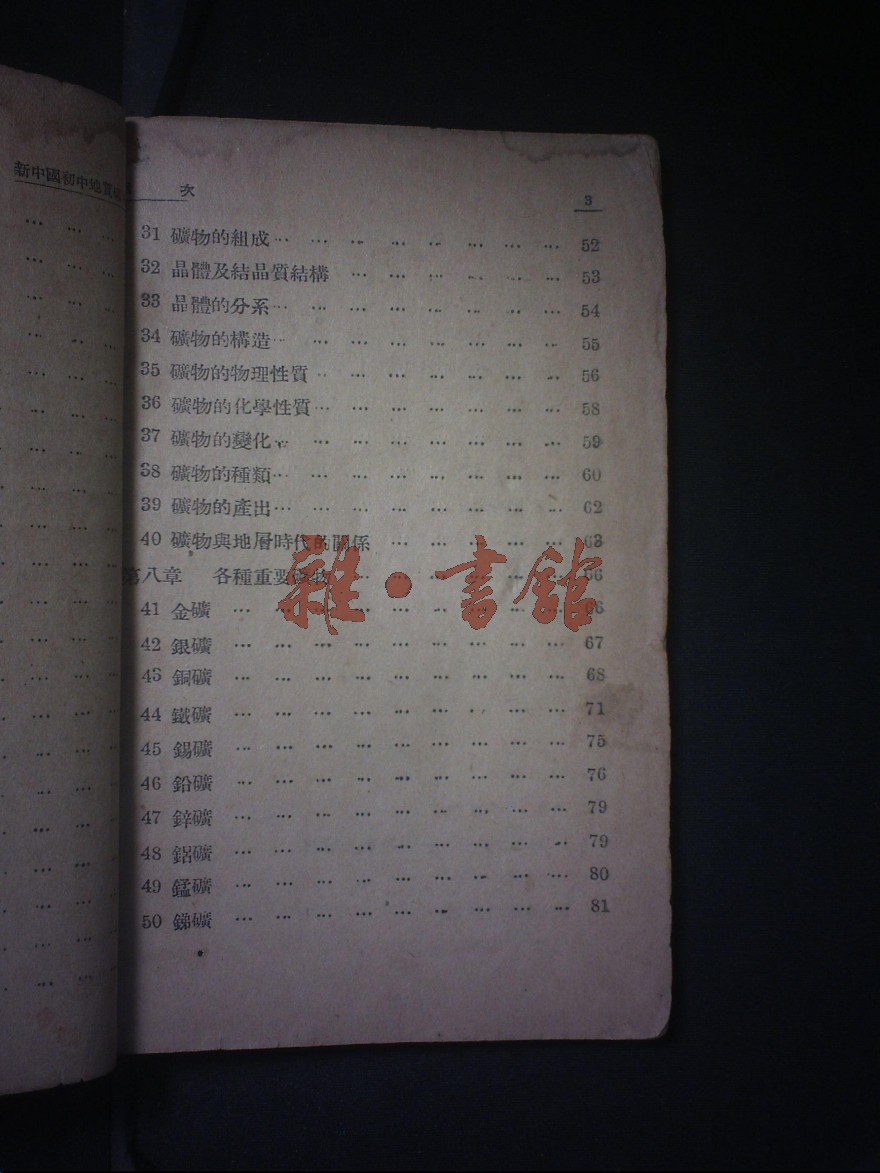 新中國初中地質
次 3
31 礦物的組成… … … … … … … … 52
32 晶體及結晶質結構 … … … … … … 53
33 晶體的分系… … … … … … … … 54
34 礦物的構造… … … … … … … … 55
35 礦物的物理性質… … … … … … … 56
36 礦物的化學性質… … … … … … … 58
37 礦物的變化… … … … … … … … 59
38 礦物的種類… … … … … … … … 60
39 礦物的產出… … … … … … … … 62
40 礦物與地層時代的關係 … … … … … 63
第八章 各種重要礦物… … … … … … 66
41 金礦 … … … … … … … … … 66
42 銀礦 … … … … … … … … … 67
43 銅礦 … … … … … … … … … 68
44 鐵礦 … … … … … … … … … 71
45 錫礦 … … … … … … … … … 75
46 鉛礦 … … … … … … … … … 76
47 鋅礦 … … … … … … … … … 79
48 鋁礦 … … … … … … … … … 79
49 錳礦 … … … … … … … … … 80
50 銻礦 … … … … … … … … … 81
雜·書館